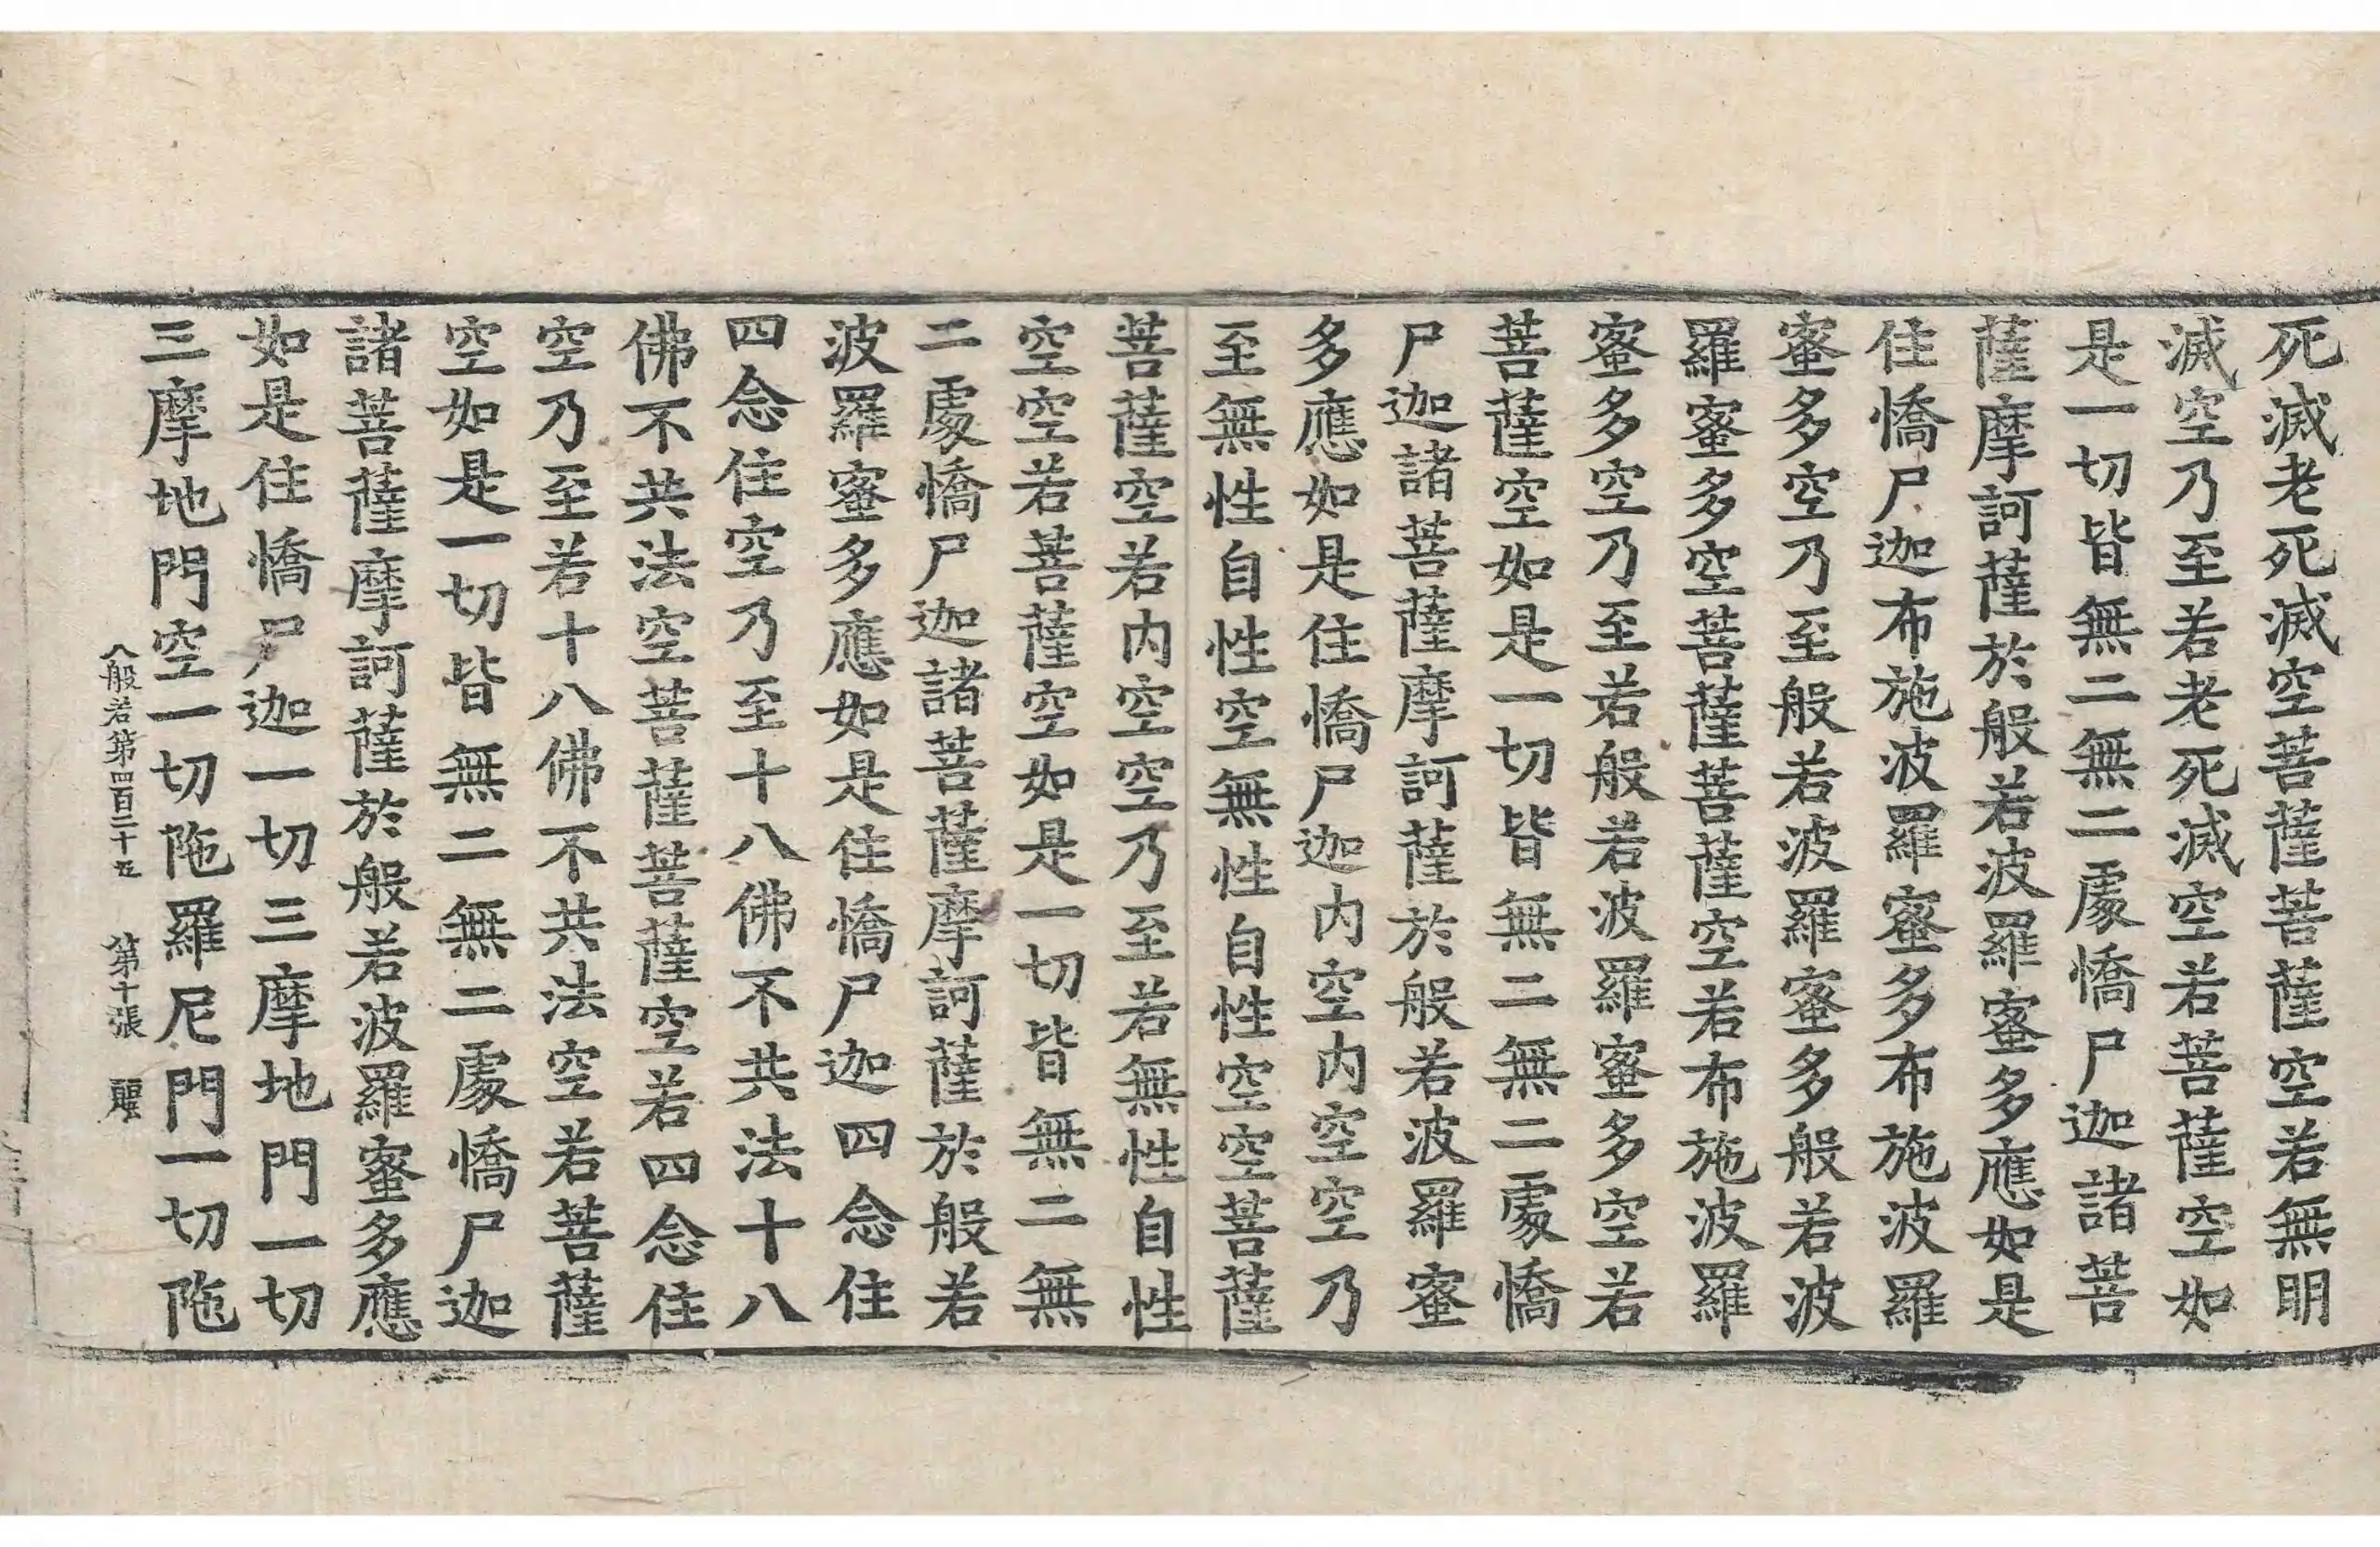 死滅老死滅空菩薩菩薩空若無明
滅空乃至若老死滅空若菩薩空如
是一切皆無二無二處憍尸迦諸菩
薩摩訶薩於般若波羅蜜多應如是
住憍尸迦布施波羅蜜多布施波羅
蜜多空乃至般若波羅蜜多般若波
羅蜜多空菩薩菩薩空若布施波羅
蜜多空乃至若般若波羅蜜多空若
菩薩空如是一切皆無二無二處憍
尸迦諸菩薩摩訶薩於般若波羅蜜
多應如是住憍尸迦内空内空空乃
至無性自性空無性自性空空菩薩
菩薩空若内空空乃至若無性自性
空空若菩薩空如是一切皆無二無
二處憍尸迦諸菩薩摩訶薩於般若
波羅蜜多應如是住憍尸迦四念住
四念住空乃至十八佛不共法十八
佛不共法空菩薩菩薩空若四念住
空乃至若十八佛不共法空若菩薩
空如是一切皆無二無二處憍尸迦
諸菩薩摩訶薩於般若波羅蜜多應
如是住憍尸迦一切三摩地門一切
三摩地門空一切陁羅尼門一切陁
般若第四百二十五 第十張